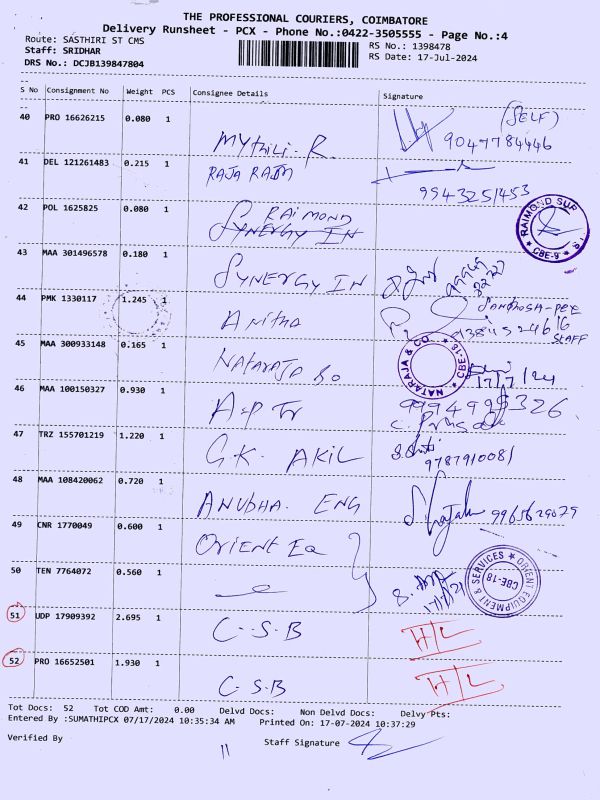 THE PROFESSIONAL COURIERS, COIMBATORE
Delivery Runsheet - PCX - Phone No.:0422-3505555 - Page No.:4
Route: SASTHIRI ST CMS
RS No.: 1398478
Staff: SRIDHAR
RS Date: 17-Jul-2024
DRS No.: DCJB139847804
S No Consignment No Weight PCS Consignee Details Signature
40 PRO 16626215 0.080 1 Mythili. R (SELF)
9047784446
41 DEL 121261483 0.215 1 RAJA RAM
9943251453
42 POL 1625825 0.080 1 RAIMOND
SYNERGY IN
RAIMOND SUP CBE-9
43 MAA 301496578 0.180 1 SYNERGY IN
44 PMK 1330117 1.245 1 Anitha
STAFF
45 MAA 300933148 0.165 1 NATARAJA & Co
NATARAJA & CO. CBE-18
17/7/24
46 MAA 100150327 0.930 1 A.P Tr
47 TRZ 155701219 1.220 1 G.K. AKIL
9787910081
48 MAA 108420062 0.720 1 ANUBHA. ENG
9965629079
49 CNR 1770049 0.600 1 ORIENT EQ
50 TEN 7764072 0.560 1
ORIENT EQUIPMENT & SERVICES CBE-18
51 UDP 17909392 2.695 1 C.S.B H/L
52 PRO 16652501 1.930 1 C.S.B H/L
Tot Docs: 52 Tot COD Amt: 0.00 Delvd Docs: Non Delvd Docs: Delvy Pts:
Entered By :SUMATHIPCX 07/17/2024 10:35:34 AM Printed On: 17-07-2024 10:37:29
Verified By Staff Signature